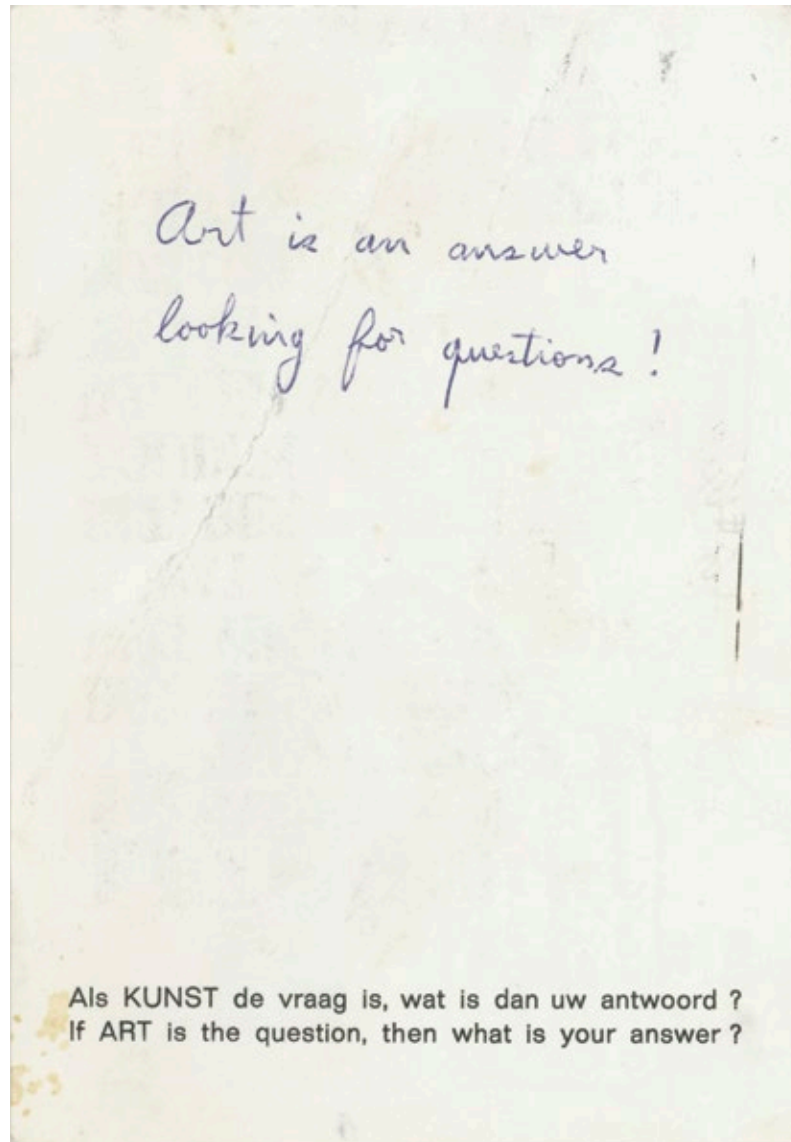 Art is an answer
looking for questions !
Als KUNST de vraag is, wat is dan uw antwoord ?
If ART is the question, then what is your answer ?